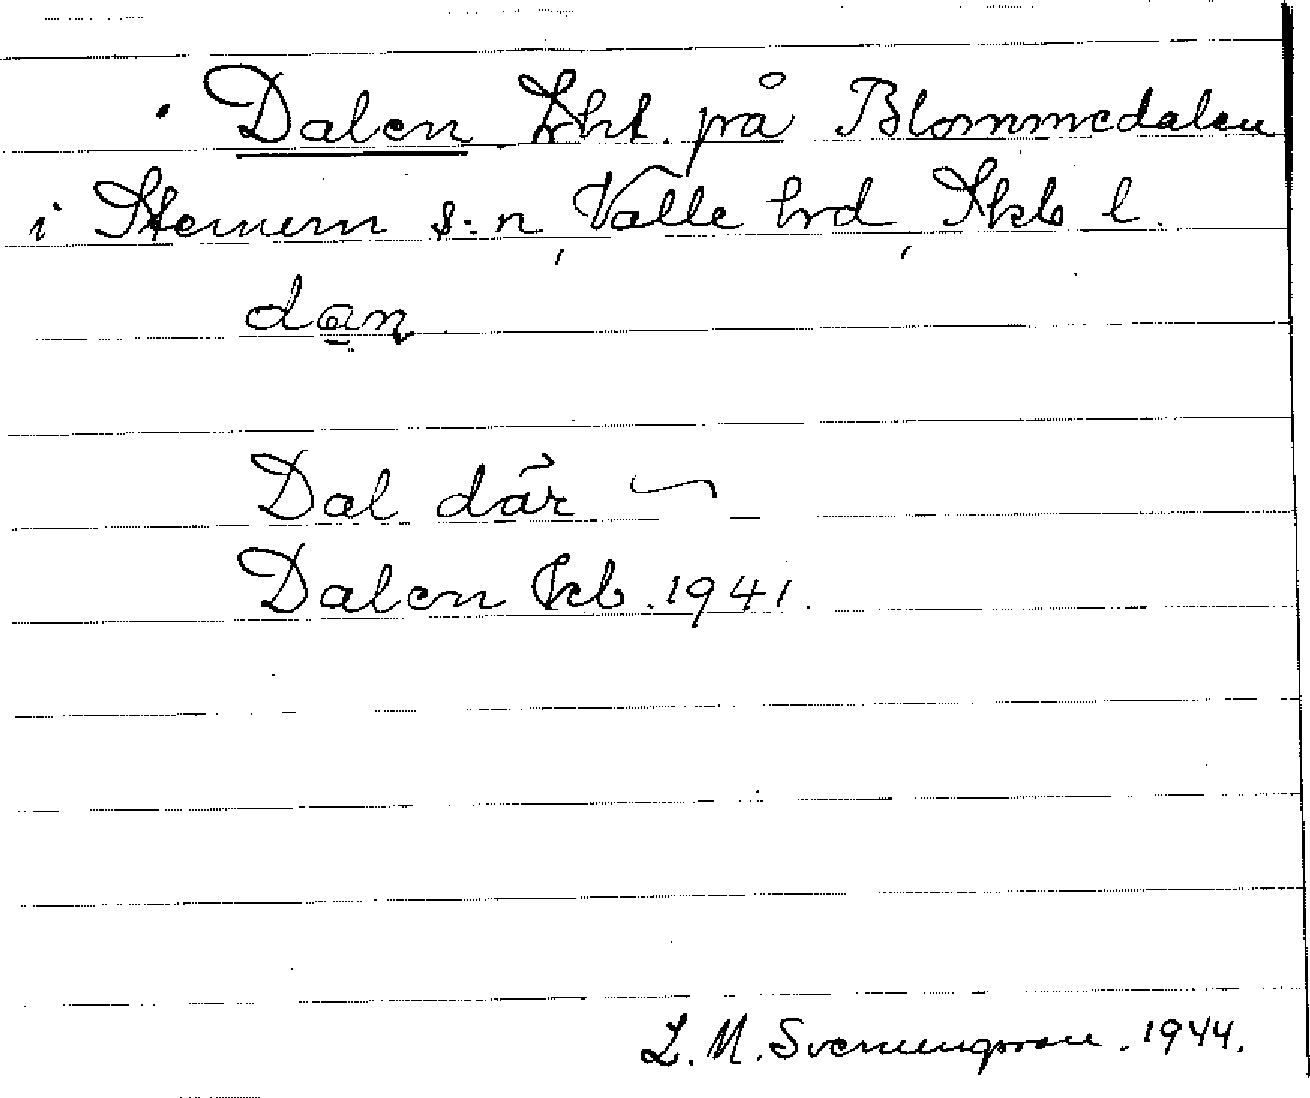 Dalen Lht. på Blommedalen
i Stenum s:n, Valle hrd, Skb l.
dan
Dal där
Dalen Ekb. 1941.
L. M. Svenungsson. 1944.